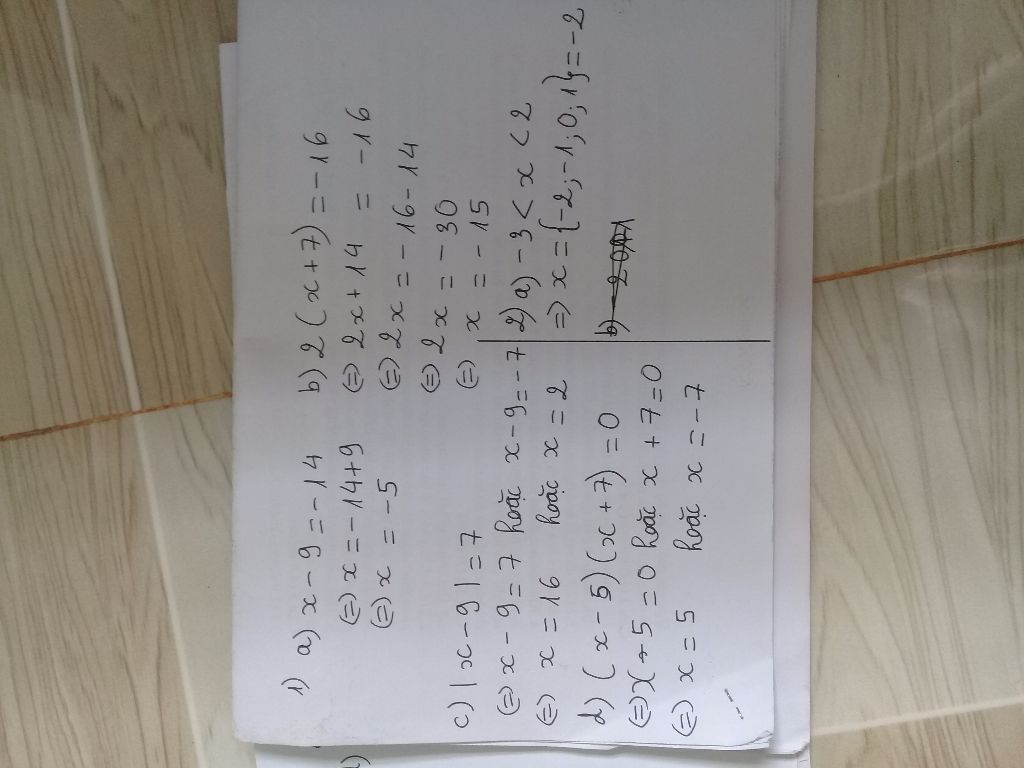 1) a) x - 9 = - 14
(=) x = - 14 + 9
(=) x = - 5
b) 2 ( x + 7 ) = - 16
(=) 2x + 14 = - 16
(=) 2x = - 16 - 14
(=) 2x = - 30
(=) x = - 15
c) | x - 9 | = 7
(=) x - 9 = 7 hoặc x - 9 = - 7
(=) x = 16 hoặc x = 2
d) ( x - 5 ) ( x + 7 ) = 0
(=) x - 5 = 0 hoặc x + 7 = 0
(=) x = 5 hoặc x = - 7
2) a) - 3 < x < 2
=) x = { - 2 ; - 1 ; 0 ; 1 } = - 2
b)